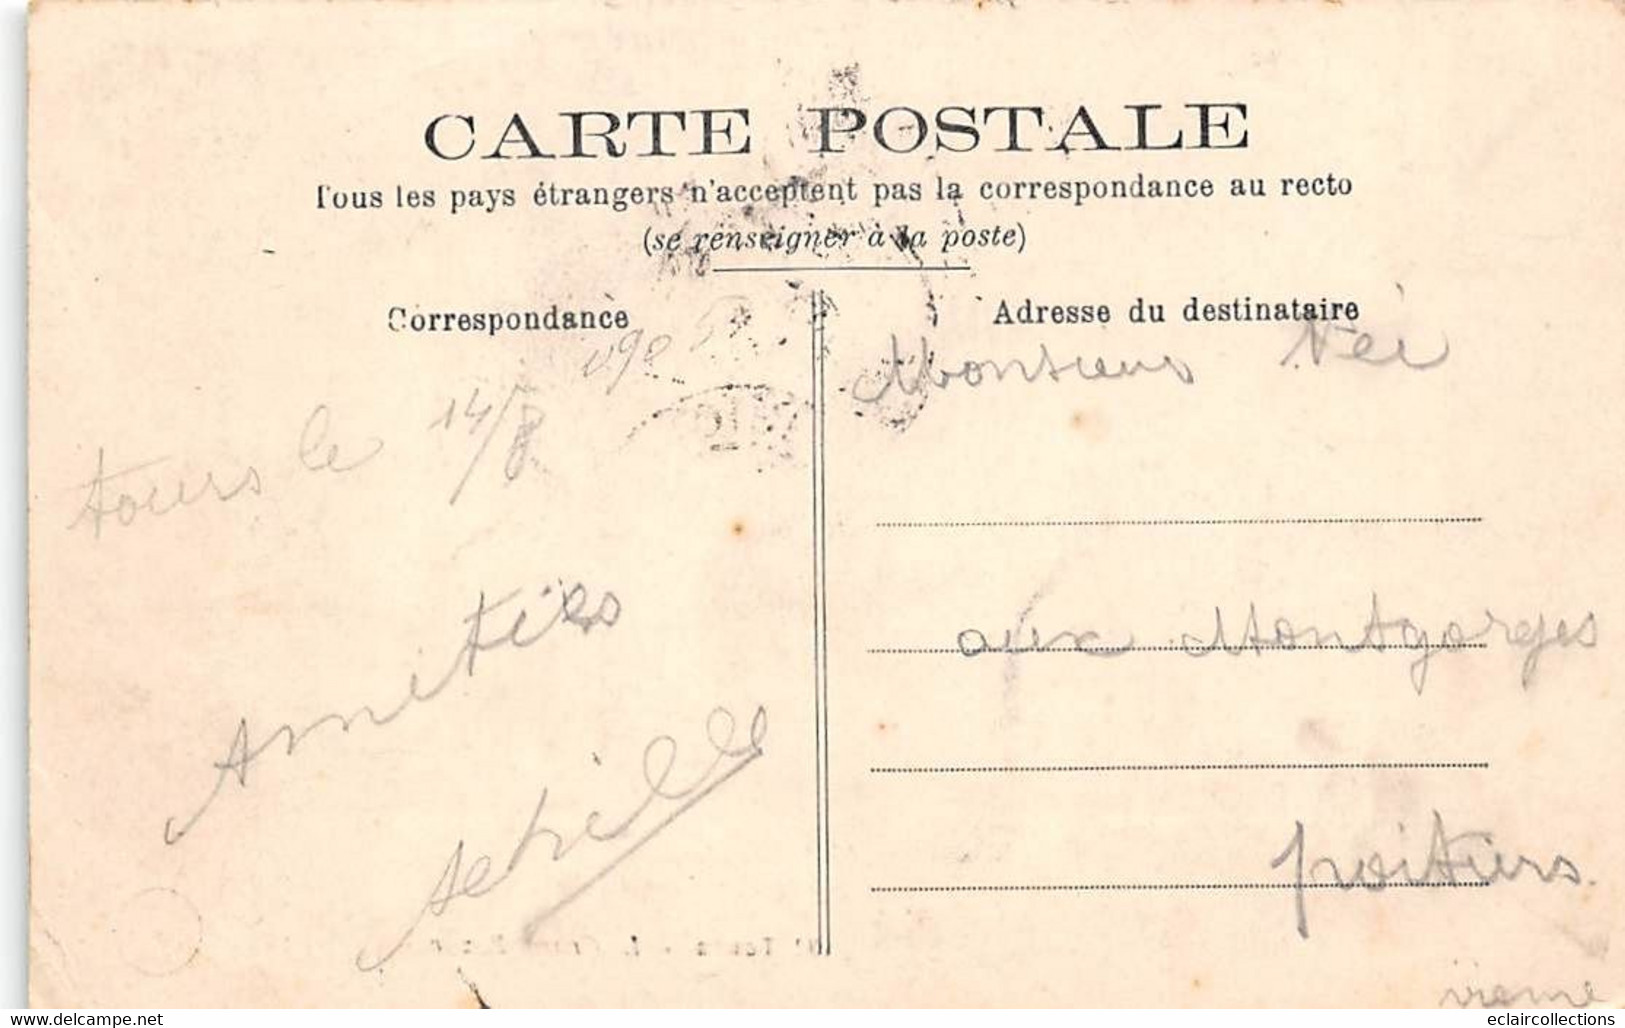 CARTE POSTALE
Tous les pays étrangers n'acceptent pas la correspondance au recto
(se renseigner à la poste)
Correspondance
Adresse du destinataire
tours le 14/8 190
Amitiés
Achille
Monsieur
aux Montgorges
poitiers.
vienne
www.delcampe.net
eclaircollections